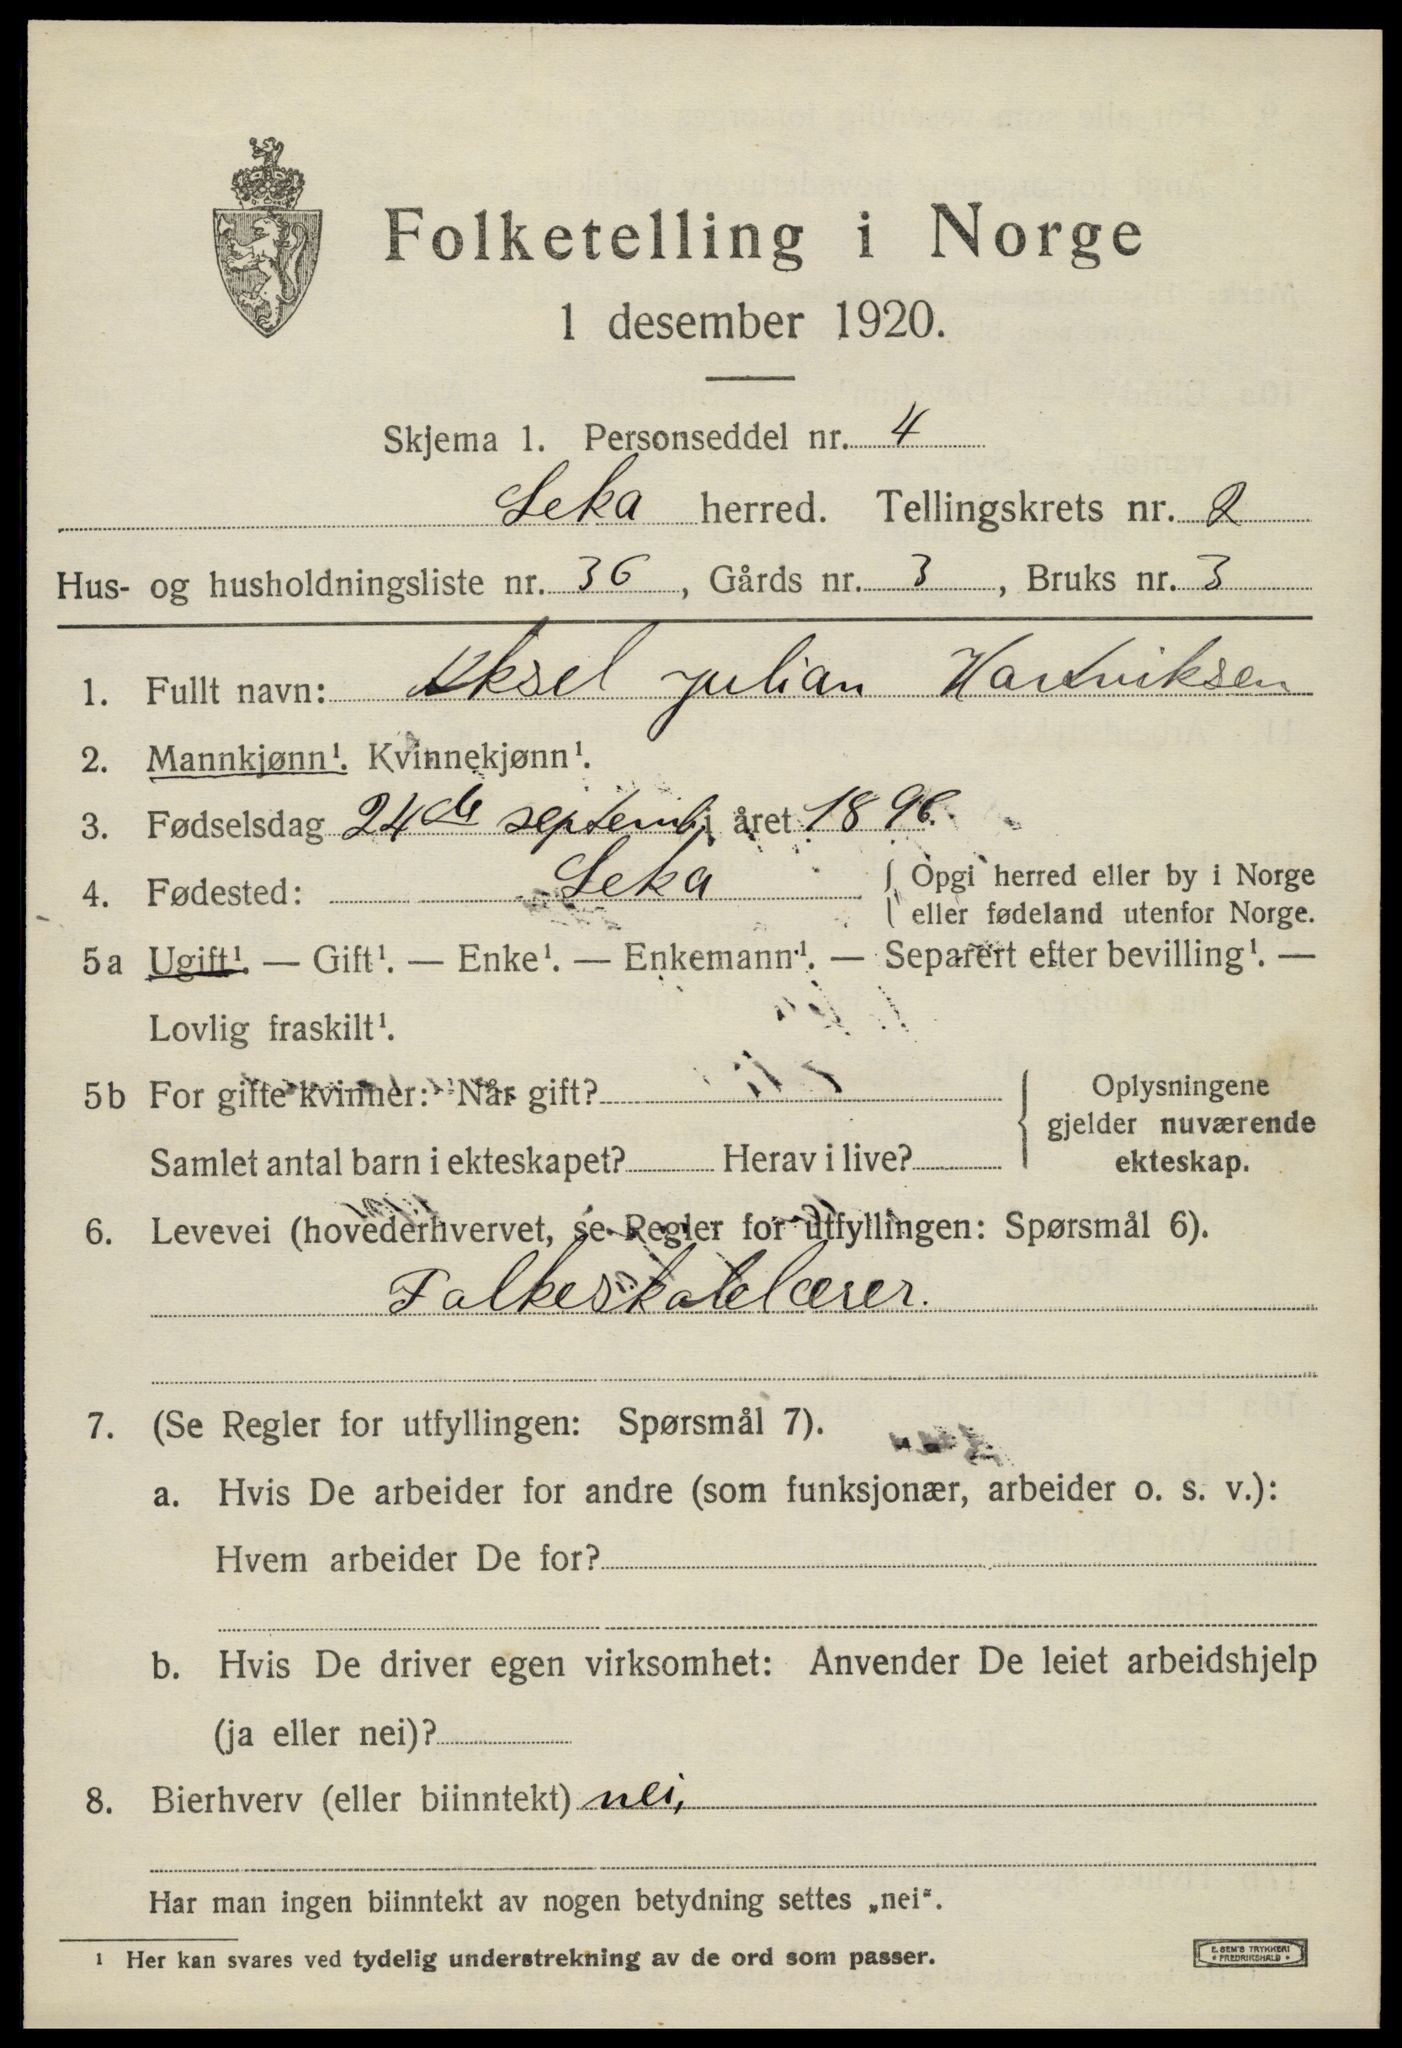 Folketelling i Norge
1 desember 1920.
Skjema 1. Personseddel nr. 4
Leka herred. Tellingskrets nr. 2
Hus- og husholdningsliste nr. 36, Gårds nr. 3, Bruks nr. 3
1. Fullt navn: Aksel Julian Hartviksen
2. Mannkjønn¹. Kvinnekjønn¹.
3. Fødselsdag 24de septemb i året 1896.
4. Fødested: Leka { Opgi herred eller by i Norge
eller fødeland utenfor Norge.
5a Ugift¹. — Gift¹. — Enke¹. — Enkemann¹. — Separert efter bevilling¹. —
Lovlig fraskilt¹.
5b For gifte kvinner: Når gift? } Oplysningene
gjelder nuværende
Samlet antal barn i ekteskapet? Herav i live? ekteskap.
6. Levevei (hovederhvervet, se Regler for utfyllingen: Spørsmål 6).
Folkeskolelærer.
7. (Se Regler for utfyllingen: Spørsmål 7).
a. Hvis De arbeider for andre (som funksjonær, arbeider o. s. v.):
Hvem arbeider De for?
b. Hvis De driver egen virksomhet: Anvender De leiet arbeidshjelp
(ja eller nei)?
8. Bierhverv (eller biinntekt) nei,
Har man ingen biinntekt av nogen betydning settes „nei“.
¹ Her kan svares ved tydelig understrekning av de ord som passer.
E. SEM'S TRYKKERI
* FREDRIKSHALD *